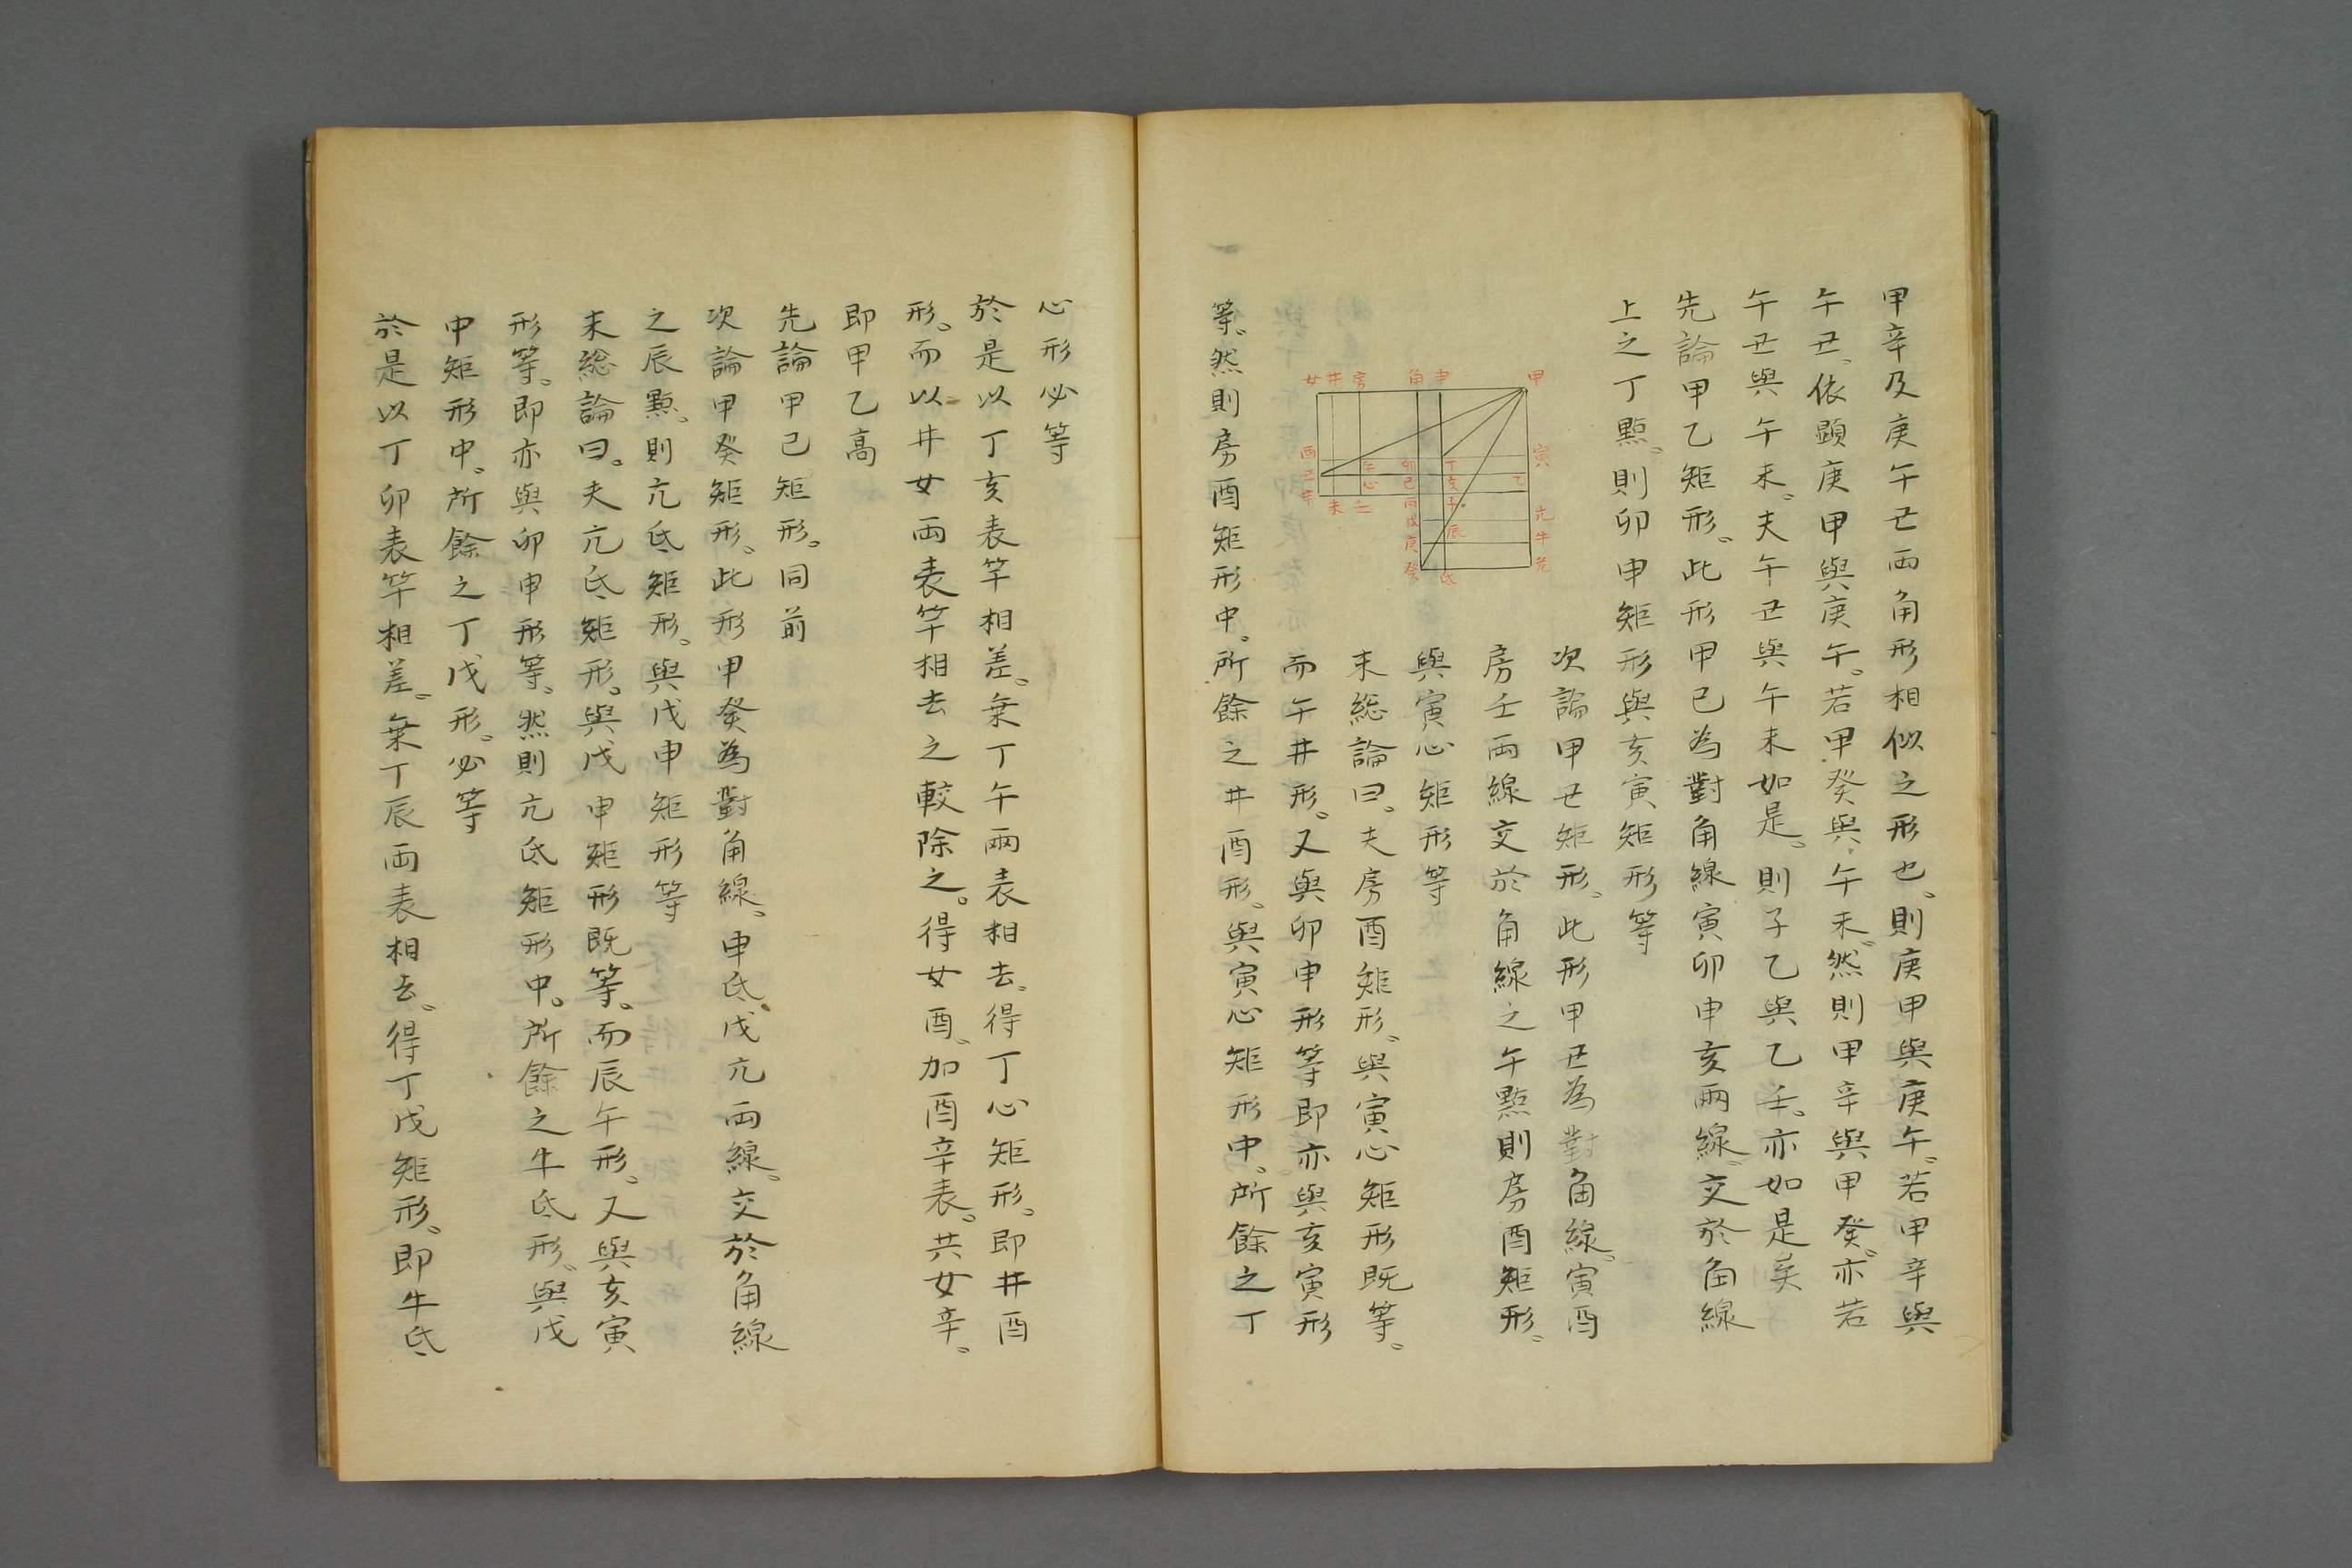 甲辛及庚午丑両角形相似之形也、則庚甲與庚午。若甲辛與
午丑、依顕庚甲與庚午。若甲癸與午未。然則甲辛與甲癸。亦若
午丑與午未。夫午丑與午未如是。則子乙與乙壬。亦如是矣
先論甲乙矩形。此形甲已為對角線寅卯申亥兩線。交於角線
上之丁㸃。則卯申矩形與亥寅矩形等
次論甲丑矩形。此形甲丑為對角線。寅酉
房壬両線交於角線之午㸃則房酉矩形。
與寅心矩形等
末総論曰。夫房酉矩形。與寅心矩形既等。
而午井形。又與卯申形等即亦與亥寅形
等。然則房酉矩形中。所餘之井酉形。與寅心矩形中。所餘之丁
甲
申
角
房
井
女
寅
乙
亢
牛
丁
亥
子
辰
氐
卯
已
戊
庚
癸
午
心
壬
未
酉
丑
辛
心形必等
於是以丁亥表竿相差。乗丁午兩表相去。得丁心矩形。即井酉
形。而以井女両表竿相去之較除之。得女酉。加酉辛表。共女辛。
即甲乙高
先論甲已矩形。同前
次論甲癸矩形。此形甲癸為對角線。申氐戊亢両線。交於角線
之辰㸃。則亢氐矩形。與戊申矩形等
末総論曰。夫亢氐矩形。與戊申矩形既等。而辰午形。又與亥寅
形等。即亦與卯申形等。然則亢氐矩形中。所餘之牛氐形。與戊
申矩形中。所餘之丁戊形。必等
於是以丁卯表竿相差。乗丁辰両表相去。得丁戊矩形。即牛氐